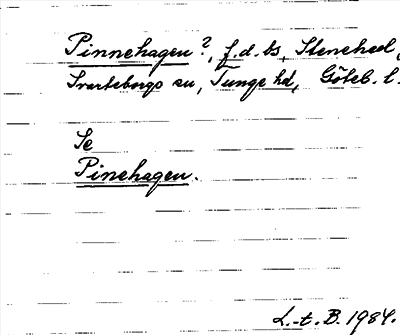 Pinnehagen?, f.d. ts, Stenehed,
Svarteborgs sn, Tunge hd, Göteb. l.
Se
Pinehagen.
L. t. B. 1984.